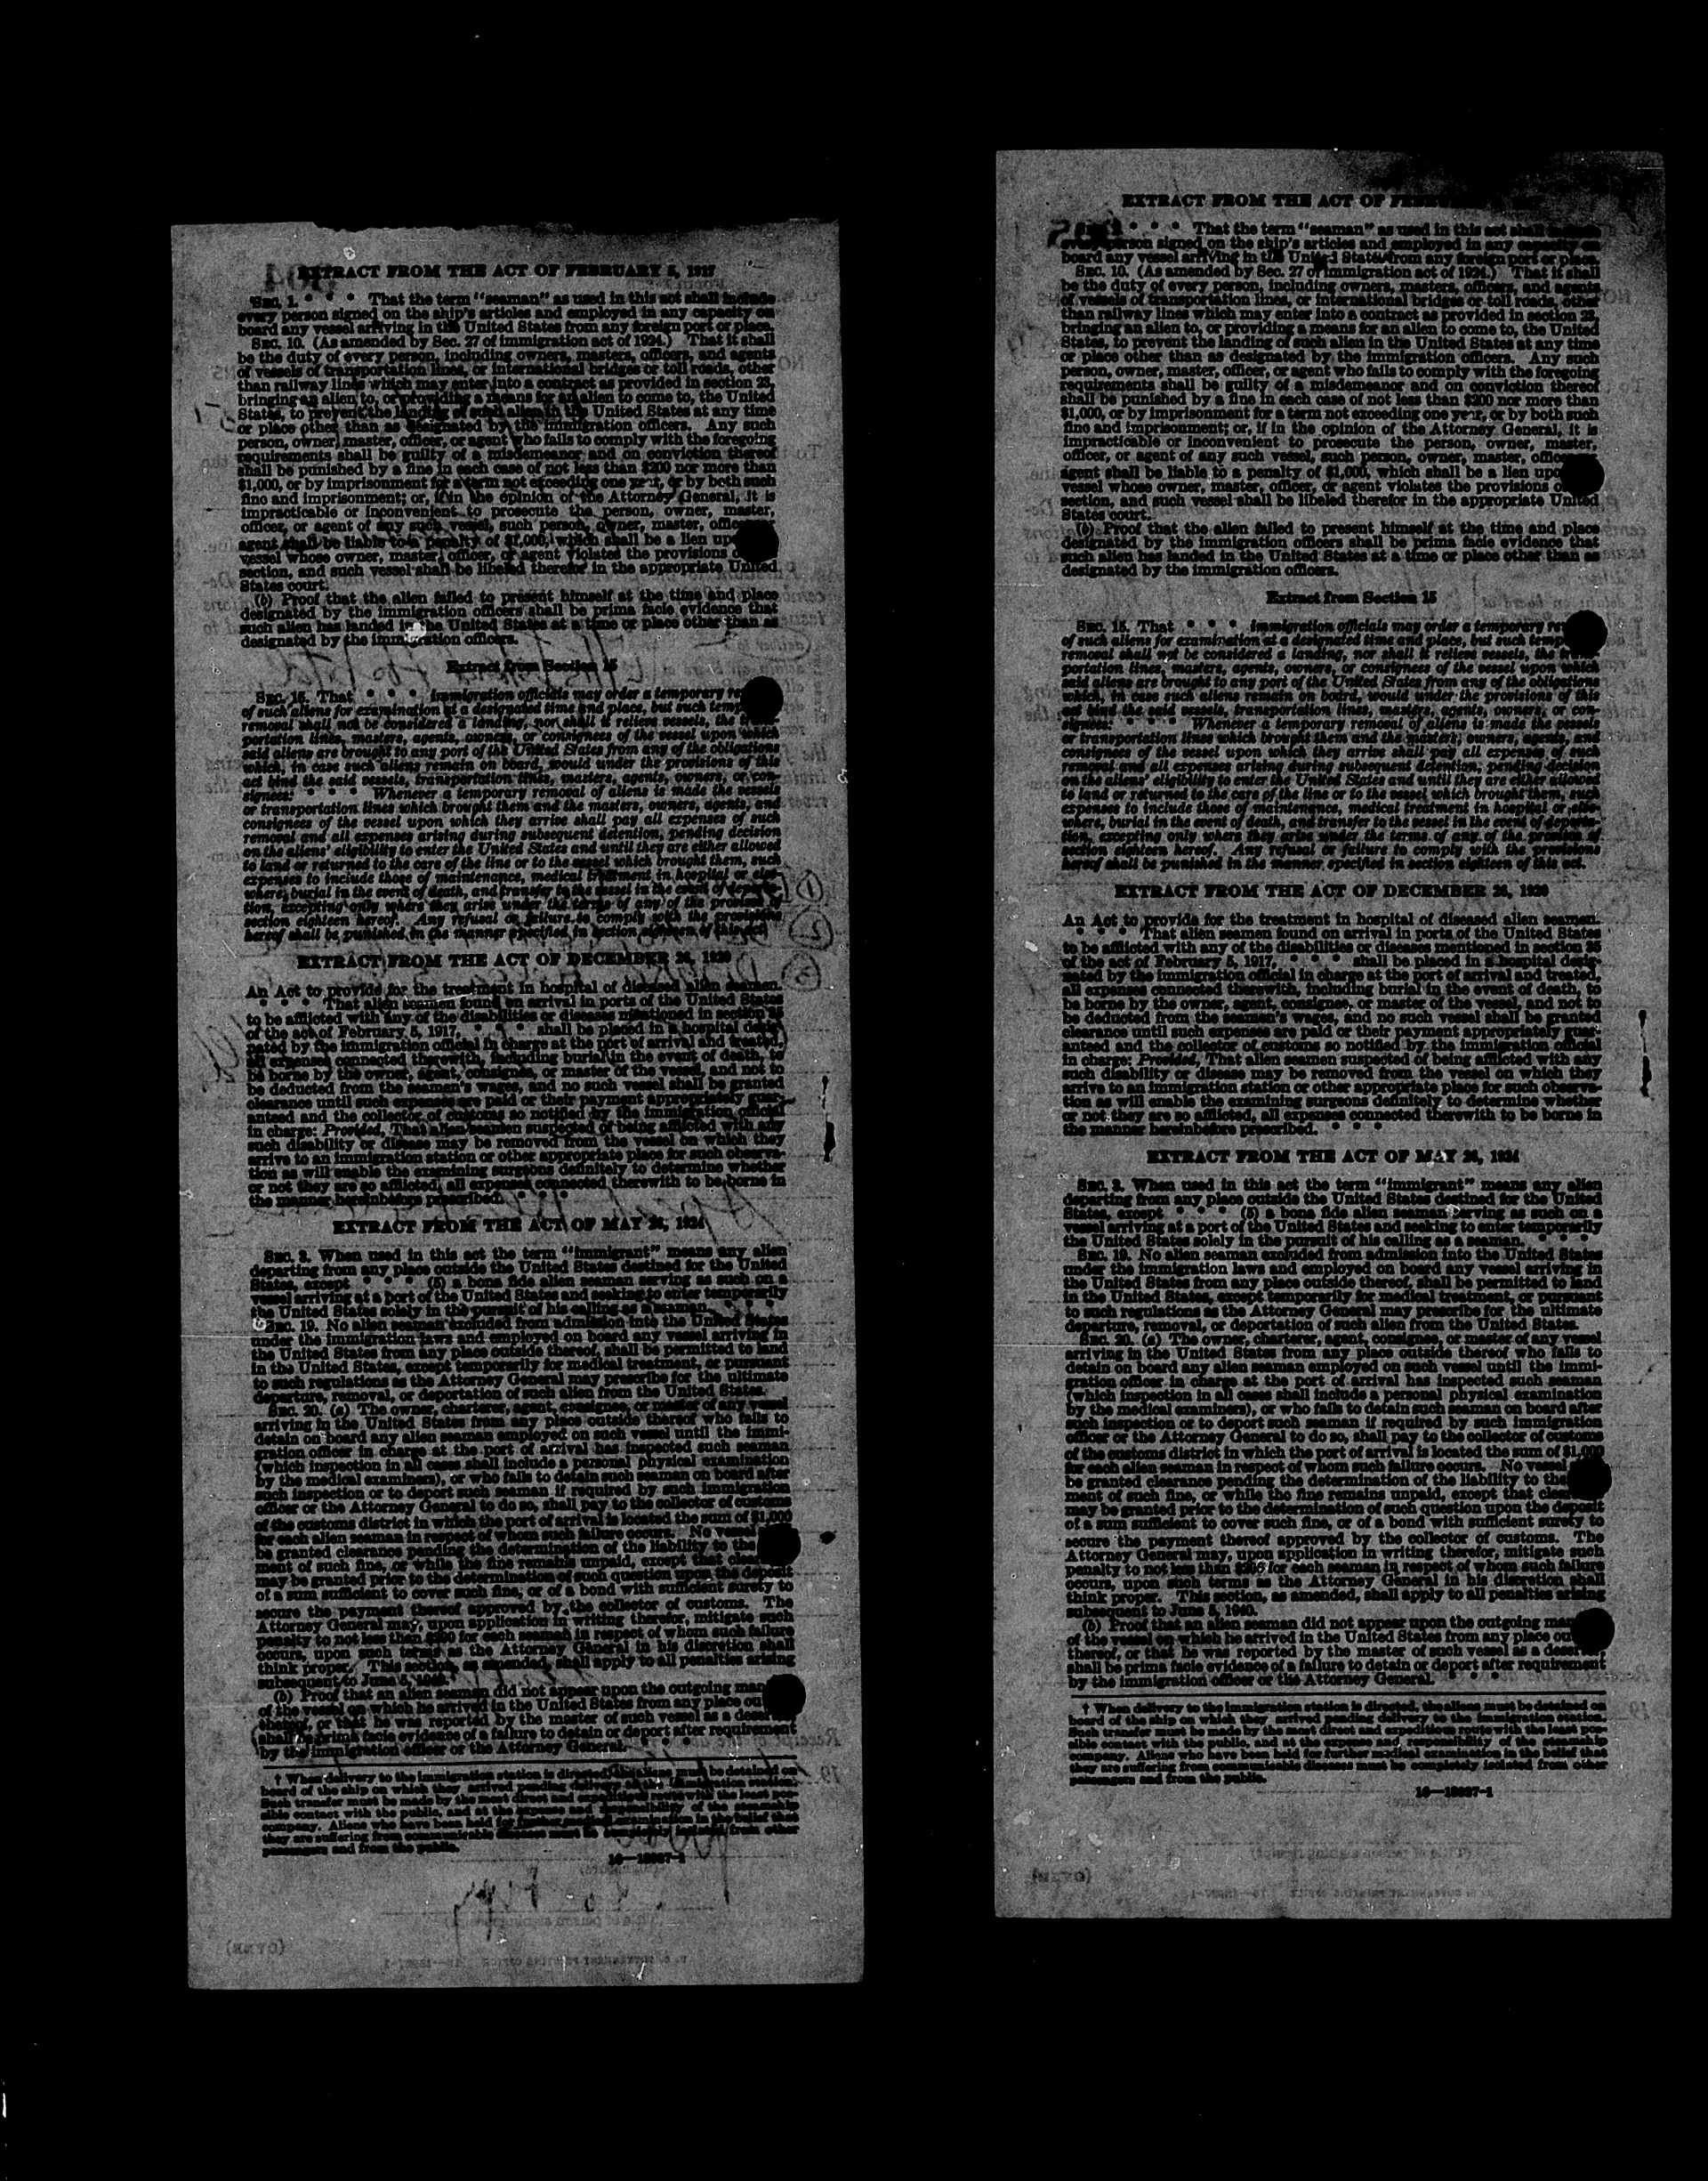 EXTRACT FROM THE ACT OF FEBRUARY 5, 1917
SEC. 1. * * * That the term "seaman" as used in this act shall include
every person signed on the ship's articles and employed in any capacity on
board any vessel arriving in the United States from any foreign port or place.
SEC. 10. (As amended by Sec. 27 of immigration act of 1924.) That it shall
be the duty of every person, including owners, masters, officers, and agents
of vessels of transportation lines, or international bridges or toll roads, other
than railway lines which may enter into a contract as provided in section 23,
bringing an alien to, or providing a means for an alien to come to, the United
States, to prevent the landing of such alien in the United States at any time
or place other than as designated by the immigration officers. Any such
person, owner, master, officer, or agent who fails to comply with the foregoing
requirements shall be guilty of a misdemeanor and on conviction thereof
shall be punished by a fine in each case of not less than $200 nor more than
$1,000, or by imprisonment for a term not exceeding one year, or by both such
fine and imprisonment; or, if in the opinion of the Attorney General, it is
impracticable or inconvenient to prosecute the person, owner, master,
officer, or agent of any such vessel, such person, owner, master, office
agent shall be liable to a penalty of $1,000, which shall be a lien upo
vessel whose owner, master, officer, or agent violates the provisions o
section, and such vessel shall be libeled therefor in the appropriate United
States court.
(b) Proof that the alien failed to present himself at the time and place
designated by the immigration officers shall be prima facie evidence that
such alien has landed in the United States at a time or place other than as
designated by the immigration officers.
Extract from Section 15
SEC. 15. That * * * immigration officials may order a temporary re
of such aliens for examination at a designated time and place, but such temp
removal shall not be considered a landing, nor shall it relieve vessels, the trans-
portation lines, masters, agents, owners, or consignees of the vessel upon which
said aliens are brought to any port of the United States from any of the obligations
which, in case such aliens remain on board, would under the provisions of this
act bind the said vessels, transportation lines, masters, agents, owners, or con-
signees: * * * Whenever a temporary removal of aliens is made the vessels
or transportation lines which brought them and the masters, owners, agents, and
consignees of the vessel upon which they arrive shall pay all expenses of such
removal and all expenses arising during subsequent detention, pending decision
on the aliens' eligibility to enter the United States and until they are either allowed
to land or returned to the care of the line or to the vessel which brought them, such
expenses to include those of maintenance, medical treatment in hospital or else-
where, burial in the event of death, and transfer to the vessel in the event of deporta-
tion, excepting only where they arise under the terms of any of the provisos of
section eighteen hereof. Any refusal or failure to comply with the provisions
hereof shall be punished in the manner specified in section eighteen of this act.
EXTRACT FROM THE ACT OF DECEMBER 26, 1920
An Act to provide for the treatment in hospital of diseased alien seamen.
* * * That alien seamen found on arrival in ports of the United States
to be afflicted with any of the disabilities or diseases mentioned in section 35
of the act of February 5, 1917, * * * shall be placed in a hospital desig-
nated by the immigration official in charge at the port of arrival and treated,
all expenses connected therewith, including burial in the event of death, to
be borne by the owner, agent, consignee, or master of the vessel, and not to
be deducted from the seamen's wages, and no such vessel shall be granted
clearance until such expenses are paid or their payment appropriately guar-
anteed and the collector of customs so notified by the immigration official
in charge: Provided, That alien seamen suspected of being afflicted with any
such disability or disease may be removed from the vessel on which they
arrive to an immigration station or other appropriate place for such observa-
tion as will enable the examining surgeons definitely to determine whether
or not they are so afflicted, all expenses connected therewith to be borne in
the manner hereinbefore prescribed. * * *
EXTRACT FROM THE ACT OF MAY 26, 1924
SEC. 3. When used in this act the term "immigrant" means any alien
departing from any place outside the United States destined for the United
States, except * * * (5) a bona fide alien seaman serving as such on a
vessel arriving at a port of the United States and seeking to enter temporarily
the United States solely in the pursuit of his calling as a seaman. * * *
SEC. 19. No alien seaman excluded from admission into the United States
under the immigration laws and employed on board any vessel arriving in
the United States from any place outside thereof, shall be permitted to land
in the United States, except temporarily for medical treatment, or pursuant
to such regulations as the Attorney General may prescribe for the ultimate
departure, removal, or deportation of such alien from the United States.
SEC. 20. (a) The owner, charterer, agent, consignee, or master of any vessel
arriving in the United States from any place outside thereof who fails to
detain on board any alien seaman employed on such vessel until the immi-
gration officer in charge at the port of arrival has inspected such seaman
(which inspection in all cases shall include a personal physical examination
by the medical examiners), or who fails to detain such seaman on board after
such inspection or to deport such seaman if required by such immigration
officer or the Attorney General to do so, shall pay to the collector of customs
of the customs district in which the port of arrival is located the sum of $1,000
for each alien seaman in respect of whom such failure occurs. No vessel
be granted clearance pending the determination of the liability to the
ment of such fine, or while the fine remains unpaid, except that clea
may be granted prior to the determination of such question upon the deposit
of a sum sufficient to cover such fine, or of a bond with sufficient surety to
secure the payment thereof approved by the collector of customs. The
Attorney General may, upon application in writing therefor, mitigate such
penalty to not less than $200 for each seaman in respect of whom such failure
occurs, upon such terms as the Attorney General in his discretion shall
think proper. This section, as amended, shall apply to all penalties arising
subsequent to June 5, 1940.
(b) Proof that an alien seaman did not appear upon the outgoing man
of the vessel on which he arrived in the United States from any place ou
thereof, or that he was reported by the master of such vessel as a deser
shall be prima facie evidence of a failure to detain or deport after requirement
by the immigration officer or the Attorney General. * * *
† When delivery to the immigration station is directed, the aliens must be detained on
board of the ship on which they arrived pending delivery to the immigration station.
Such transfer must be made by the most direct and expeditious route with the least pos-
sible contact with the public, and at the expense and responsibility of the steamship
company. Aliens who have been held for further medical examination in the belief that
they are suffering from communicable diseases must be completely isolated from other
passengers and from the public.
16—13327-1
EXTRACT FROM THE ACT OF FEBRU
SEC. 1. * * * That the term "seaman" as used in this act shall include
every person signed on the ship's articles and employed in any capacity on
board any vessel arriving in the United States from any foreign port or place.
SEC. 10. (As amended by Sec. 27 of immigration act of 1924.) That it shall
be the duty of every person, including owners, masters, officers, and agents
of vessels of transportation lines, or international bridges or toll roads, other
than railway lines which may enter into a contract as provided in section 23,
bringing an alien to, or providing a means for an alien to come to, the United
States, to prevent the landing of such alien in the United States at any time
or place other than as designated by the immigration officers. Any such
person, owner, master, officer, or agent who fails to comply with the foregoing
requirements shall be guilty of a misdemeanor and on conviction thereof
shall be punished by a fine in each case of not less than $200 nor more than
$1,000, or by imprisonment for a term not exceeding one year, or by both such
fine and imprisonment; or, if in the opinion of the Attorney General, it is
impracticable or inconvenient to prosecute the person, owner, master,
officer, or agent of any such vessel, such person, owner, master, office
agent shall be liable to a penalty of $1,000, which shall be a lien upo
vessel whose owner, master, officer, or agent violates the provisions o
section, and such vessel shall be libeled therefor in the appropriate United
States court.
(b) Proof that the alien failed to present himself at the time and place
designated by the immigration officers shall be prima facie evidence that
such alien has landed in the United States at a time or place other than as
designated by the immigration officers.
Extract from Section 15
SEC. 15. That * * * immigration officials may order a temporary re
of such aliens for examination at a designated time and place, but such temp
removal shall not be considered a landing, nor shall it relieve vessels, the trans-
portation lines, masters, agents, owners, or consignees of the vessel upon which
said aliens are brought to any port of the United States from any of the obligations
which, in case such aliens remain on board, would under the provisions of this
act bind the said vessels, transportation lines, masters, agents, owners, or con-
signees: * * * Whenever a temporary removal of aliens is made the vessels
or transportation lines which brought them and the masters, owners, agents, and
consignees of the vessel upon which they arrive shall pay all expenses of such
removal and all expenses arising during subsequent detention, pending decision
on the aliens' eligibility to enter the United States and until they are either allowed
to land or returned to the care of the line or to the vessel which brought them, such
expenses to include those of maintenance, medical treatment in hospital or else-
where, burial in the event of death, and transfer to the vessel in the event of deporta-
tion, excepting only where they arise under the terms of any of the provisos of
section eighteen hereof. Any refusal or failure to comply with the provisions
hereof shall be punished in the manner specified in section eighteen of this act.
EXTRACT FROM THE ACT OF DECEMBER 26, 1920
An Act to provide for the treatment in hospital of diseased alien seamen.
* * * That alien seamen found on arrival in ports of the United States
to be afflicted with any of the disabilities or diseases mentioned in section 35
of the act of February 5, 1917, * * * shall be placed in a hospital desig-
nated by the immigration official in charge at the port of arrival and treated,
all expenses connected therewith, including burial in the event of death, to
be borne by the owner, agent, consignee, or master of the vessel, and not to
be deducted from the seamen's wages, and no such vessel shall be granted
clearance until such expenses are paid or their payment appropriately guar-
anteed and the collector of customs so notified by the immigration official
in charge: Provided, That alien seamen suspected of being afflicted with any
such disability or disease may be removed from the vessel on which they
arrive to an immigration station or other appropriate place for such observa-
tion as will enable the examining surgeons definitely to determine whether
or not they are so afflicted, all expenses connected therewith to be borne in
the manner hereinbefore prescribed. * * *
EXTRACT FROM THE ACT OF MAY 26, 1924
SEC. 3. When used in this act the term "immigrant" means any alien
departing from any place outside the United States destined for the United
States, except * * * (5) a bona fide alien seaman serving as such on a
vessel arriving at a port of the United States and seeking to enter temporarily
the United States solely in the pursuit of his calling as a seaman. * * *
SEC. 19. No alien seaman excluded from admission into the United States
under the immigration laws and employed on board any vessel arriving in
the United States from any place outside thereof, shall be permitted to land
in the United States, except temporarily for medical treatment, or pursuant
to such regulations as the Attorney General may prescribe for the ultimate
departure, removal, or deportation of such alien from the United States.
SEC. 20. (a) The owner, charterer, agent, consignee, or master of any vessel
arriving in the United States from any place outside thereof who fails to
detain on board any alien seaman employed on such vessel until the immi-
gration officer in charge at the port of arrival has inspected such seaman
(which inspection in all cases shall include a personal physical examination
by the medical examiners), or who fails to detain such seaman on board after
such inspection or to deport such seaman if required by such immigration
officer or the Attorney General to do so, shall pay to the collector of customs
of the customs district in which the port of arrival is located the sum of $1,000
for each alien seaman in respect of whom such failure occurs. No vessel
be granted clearance pending the determination of the liability to the
ment of such fine, or while the fine remains unpaid, except that clea
may be granted prior to the determination of such question upon the deposit
of a sum sufficient to cover such fine, or of a bond with sufficient surety to
secure the payment thereof approved by the collector of customs. The
Attorney General may, upon application in writing therefor, mitigate such
penalty to not less than $200 for each seaman in respect of whom such failure
occurs, upon such terms as the Attorney General in his discretion shall
think proper. This section, as amended, shall apply to all penalties arising
subsequent to June 5, 1940.
(b) Proof that an alien seaman did not appear upon the outgoing man
of the vessel on which he arrived in the United States from any place ou
thereof, or that he was reported by the master of such vessel as a deser
shall be prima facie evidence of a failure to detain or deport after requirement
by the immigration officer or the Attorney General. * * *
† When delivery to the immigration station is directed, the aliens must be detained on
board of the ship on which they arrived pending delivery to the immigration station.
Such transfer must be made by the most direct and expeditious route with the least pos-
sible contact with the public, and at the expense and responsibility of the steamship
company. Aliens who have been held for further medical examination in the belief that
they are suffering from communicable diseases must be completely isolated from other
passengers and from the public.
16—13327-1